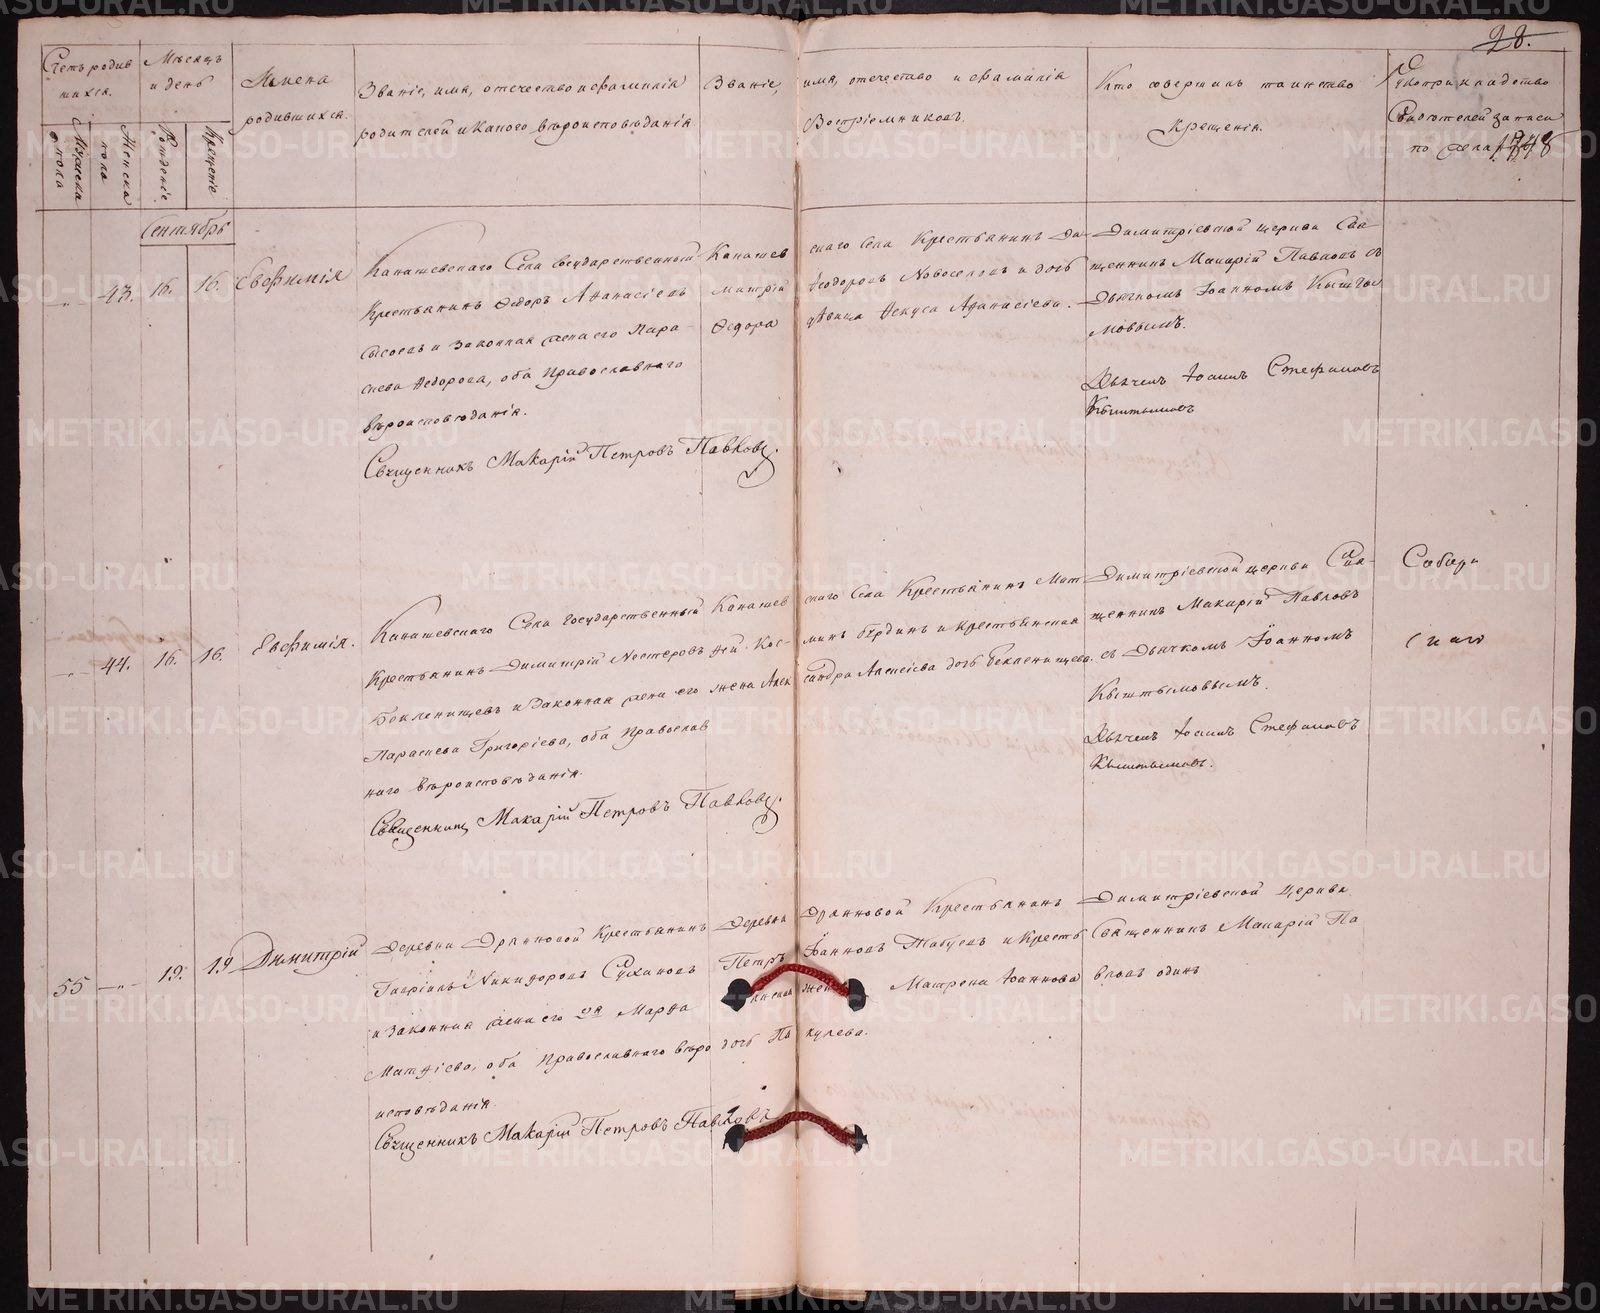 28.
Счетъ родив
шихся.
Мужеска
пола
Женска
пола
Мѣсяцъ
и день
Рожденіе
Крещеніе
Имена
родившихся.
Званіе, имя, отечество и фамилія
родителей и какого вѣроисповѣданія.
Званіе, имя, отечество и фамилія
Воспріемниковъ.
Кто совершилъ таинство
Крещенія.
Рукоприкладство
Свидѣтелей записи
по
1748
Сентябрь
43. 16. 16. Евфимія
Канашевскаго Села Государственный
Крестьянинъ Ѳедоръ Аѳанасіевъ
Сысоевъ и Законная жена его Пара-
скева Ѳедорова, оба Православнаго
вѣроисповѣданія.
Священникъ Макарій Петровъ Павловъ.
Канашев скаго Села Крестьянинъ Ди-
митрій Ѳеодоровъ Новоселовъ и дочь
Ѳедора дѣвица Аѳанасіева.
Димитріевской церкви Свя-
щенникъ Макарій Павловъ съ
Дьячкомъ Іоанномъ Кышты-
мовымъ.
Дьячекъ Іоаннъ Стефановъ
Кыштымовъ
44. 16. 16. Евфимія.
Канашевскаго Села Государственный
Крестьянинъ Димитрій Нестеровъ
Бекленищевъ и Законная жена его
Параскева Григоріева, оба Православ
наго вѣроисповѣданія.
Священникъ Макарій Петровъ Павловъ.
Канашев скаго Села Крестьянинъ Мат
ѳей Кос- минъ Бердинъ и крестьянская
жена Алек сандра Алексіева дочь Бекленищева.
Димитріевской церкви Свя-
щенникъ Макарій Павловъ
съ Дьячкомъ Іоанномъ
Кыштымовымъ.
Дьячекъ Іоаннъ Стефановъ
Кыштымовъ.
55 19. 19 Димитрій
Деревни Дрянновой Крестьянинъ
Гавріилъ Никифоровъ Сухановъ
и Законная жена его Марѳа
Матѳіева, оба Православнаго вѣро
исповѣданія.
Священникъ Макарій Петровъ Павловъ
Деревни Дрянновой Крестьянинъ
Петръ Іоанновъ Табуевъ и Кресть
янская жена Матрена Іоаннова
дочь Па кулева.
Димитріевской Церкви
Священникъ Макарій Па
вловъ одинъ
METRIKI.GASO-URAL.RU